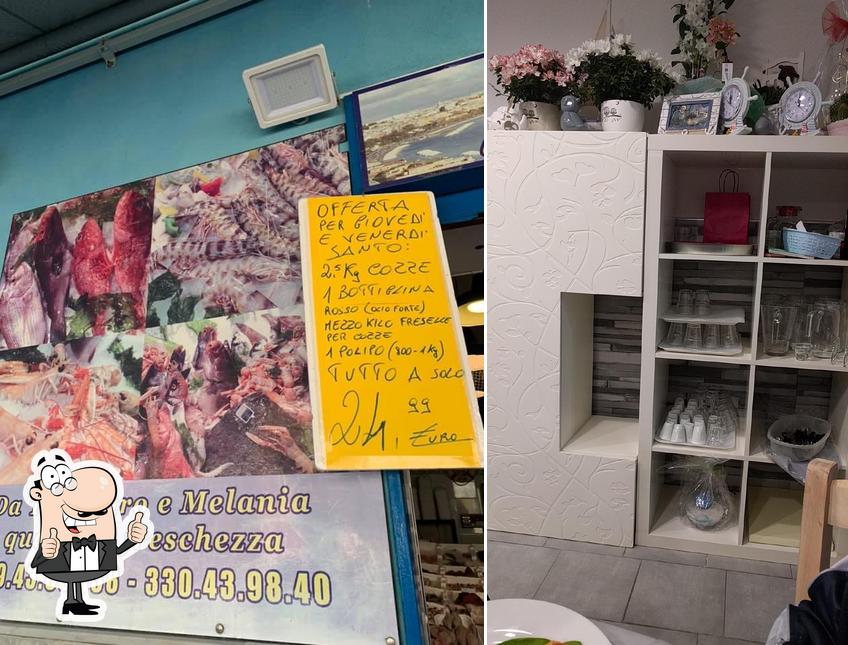 OFFERTA
PER GIOVEDI'
E VENERDI'
SANTO:
2,5 Kg COZZE
1 BOTTIGLINA
ROSSO (OCIO FORTE)
MEZZO KILO FRESELLE
PER COZZE
1 POLIPO (800-1Kg)
TUTTO A SOLO
24,99 EURO
Da e Melania
- 330.43.98.40